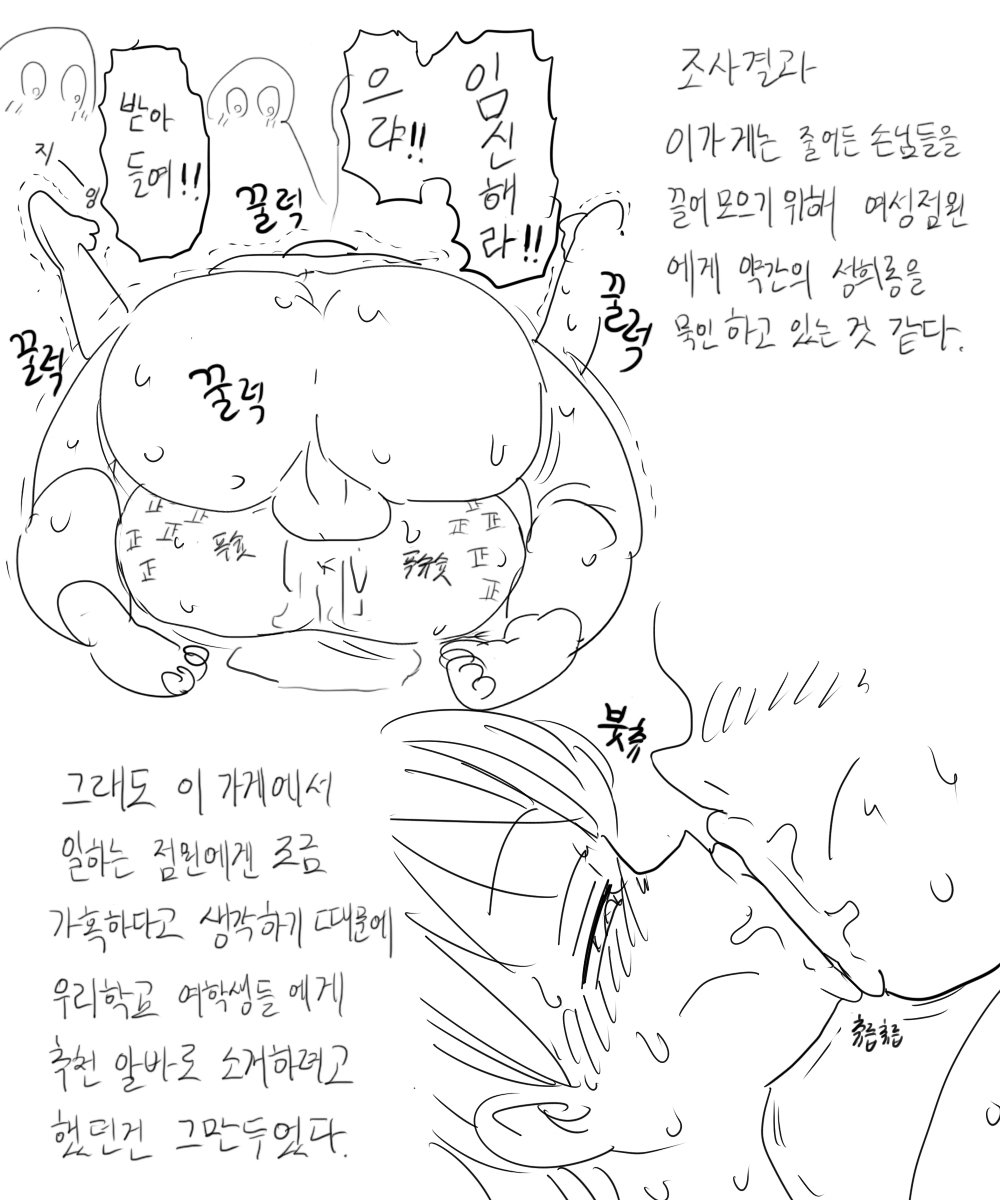 받아
들여!!
지
잉
임신해라!!
으랴!!
꿀럭
꿀럭
꿀럭
꿀럭
正 正 正 正 正 正
正 正 正 正 正
푹슛
푸슈슛
조사결과
이가게는 줄어든 손님들을
끌어모으기 위해 여성점원
에게 약간의 성희롱을
묵인하고 있는 것 같다.
붓츄
츄릅츄릅
그래도 이 가게에서
일하는 점원에겐 조금
가혹하다고 생각하기 때문에
우리학교 여학생들에게
추천 알바로 소개하려고
했던건 그만두었다.